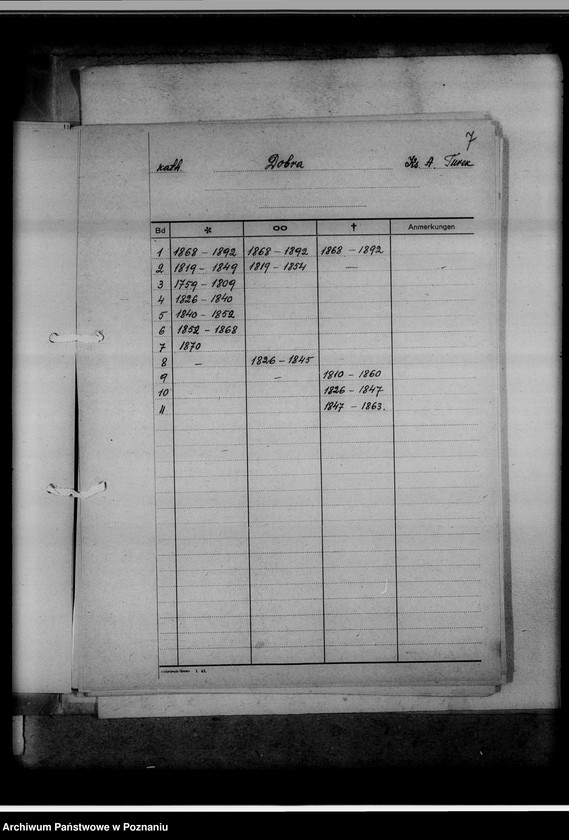 7
kath. Dobra Ks. A. Turek
Bd * ∞ † Anmerkungen
1 1868 - 1892 1868 - 1892 1868 - 1892
2 1819 - 1849 1819 - 1854 —
3 1759 - 1809
4 1826 - 1840
5 1840 - 1852
6 1852 - 1868
7 1870
8 — 1826 - 1845
9 — 1810 - 1860
10 1826 - 1847
11 1847 - 1863.
Archiwum Państwowe w Poznaniu